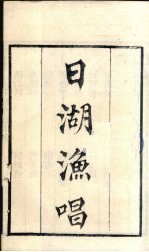 日湖漁唱